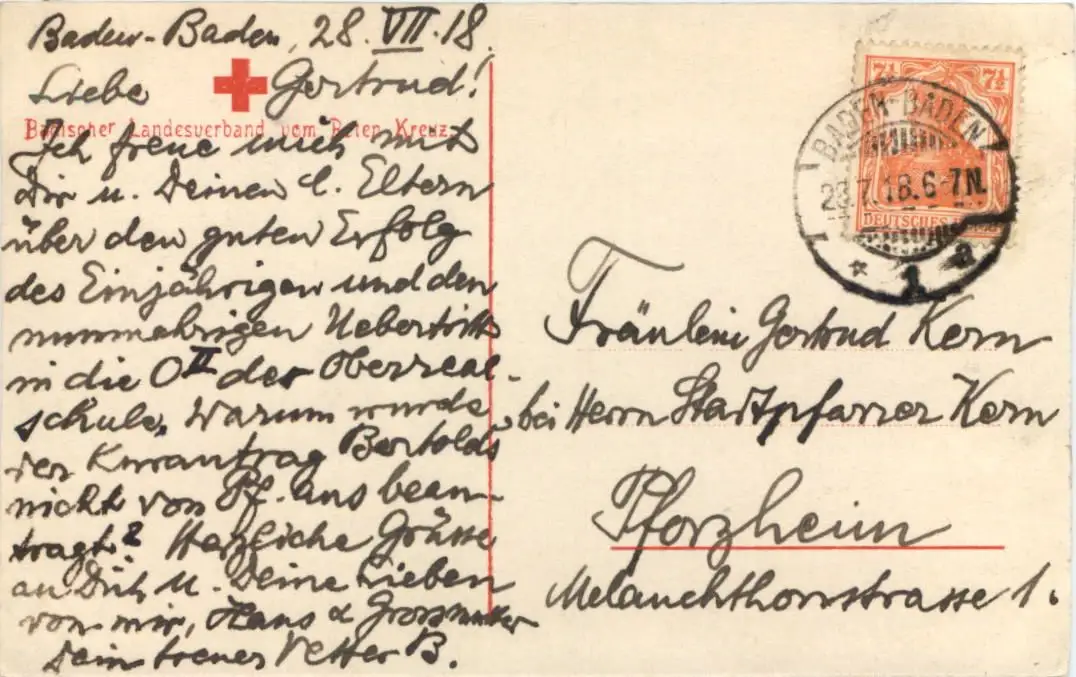 Baden-Baden, 28. VII. 18.
Liebe Gertrud!
Badischer Landesverband vom Roten Kreuz
Ich freue mich mit
Dir u. Deinen l. Eltern
über den guten Erfolg
des Einjährigen und den
nunmehrigen Uebertritt
in die O II der Oberreal-
schule. Warum wurde
der Kurantrag Bertolds
nicht von Pf. aus bean-
tragt? Herzliche Grüsse
an Dich u. Deine Lieben
von mir, Hans & Grossmutter
Dein treuer Vetter B.
7½ 7½
DEUTSCHES REICH
BADEN-BADEN
28.7.18.6-7N.
* 1 a
Fräulein Gertrud Kern
bei Herrn Stadtpfarrer Kern
Pforzheim
Melanchthonstrasse 1.